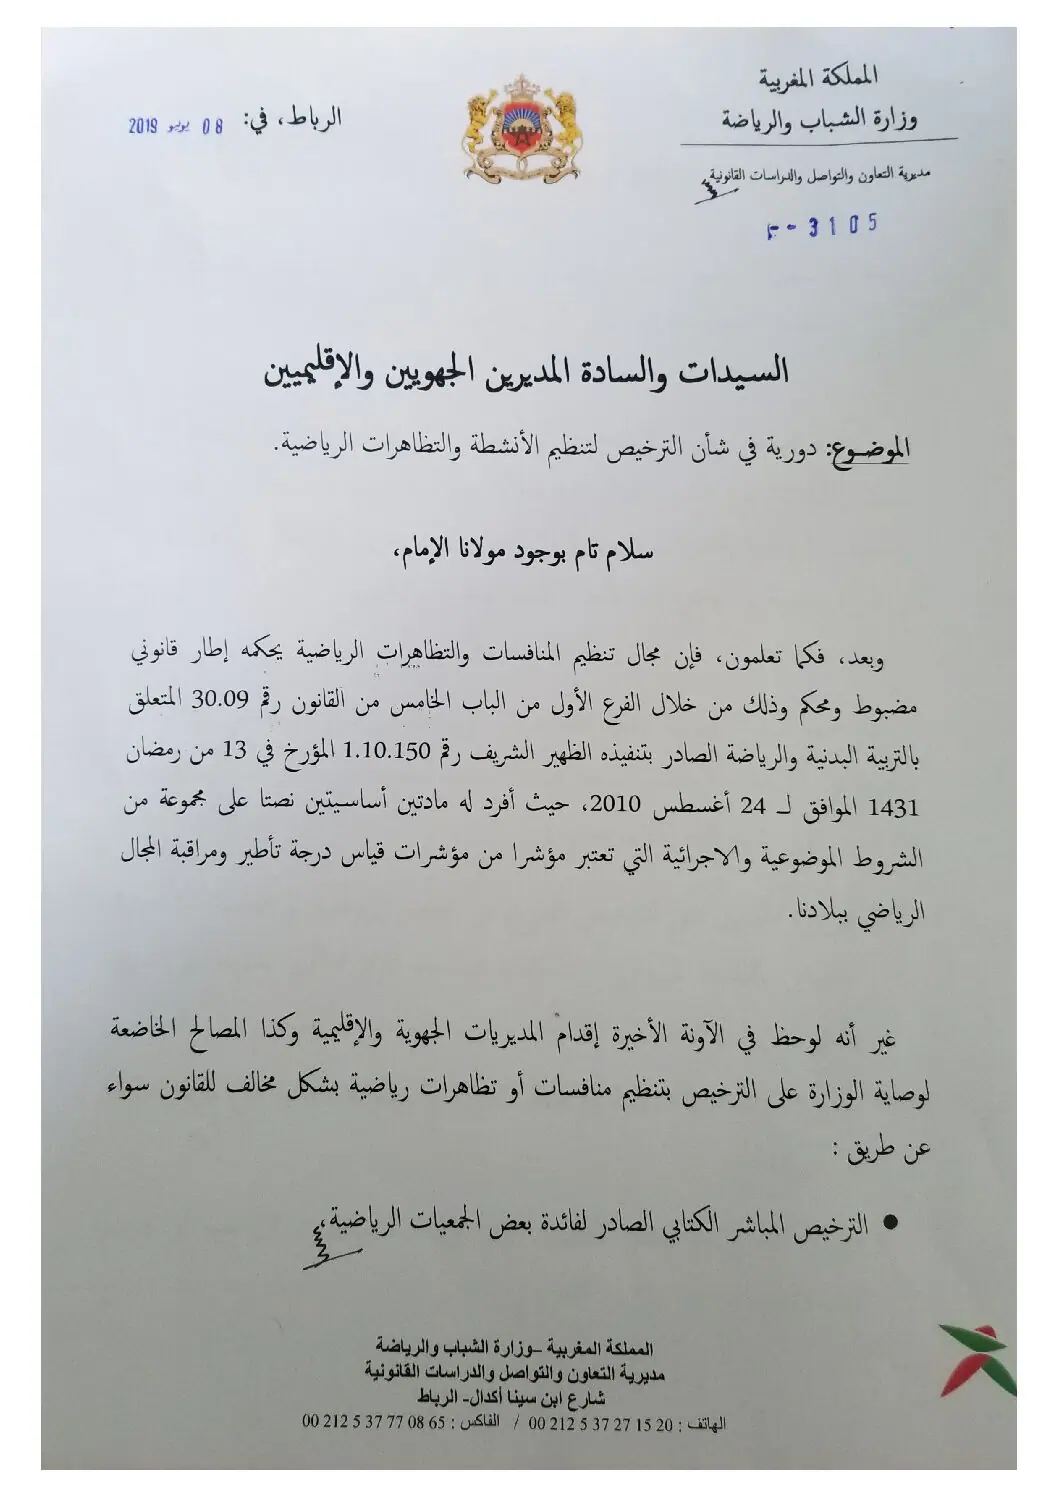 المملكة المغربية
وزارة الشباب والرياضة
مديرية التعاون والتواصل والدراسات القانونية
3105
الرباط، في: 08 يونيو 2019
السيدات والسادة المديرين الجهويين والإقليميين
الموضوع: دورية في شأن الترخيص لتنظيم الأنشطة والتظاهرات الرياضية.
سلام تام بوجود مولانا الإمام،
وبعد، فكما تعلمون، فإن مجال تنظيم المنافسات والتظاهرات الرياضية يحكمه إطار قانوني
مضبوط ومحكم وذلك من خلال الفرع الأول من الباب الخامس من القانون رقم 30.09 المتعلق
بالتربية البدنية والرياضة الصادر بتنفيذه الظهير الشريف رقم 1.10.150 المؤرخ في 13 من رمضان
1431 الموافق لـ 24 أغسطس 2010، حيث أفرد له مادتين أساسيتين نصتا على مجموعة من
الشروط الموضوعية والاجرائية التي تعتبر مؤشرا من مؤشرات قياس درجة تأطير ومراقبة المجال
الرياضي ببلادنا.
غير أنه لوحظ في الآونة الأخيرة إقدام المديريات الجهوية والإقليمية وكذا المصالح الخاضعة
لوصاية الوزارة على الترخيص بتنظيم منافسات أو تظاهرات رياضية بشكل مخالف للقانون سواء
عن طريق :
● الترخيص المباشر الكتابي الصادر لفائدة بعض الجمعيات الرياضية،
المملكة المغربية –وزارة الشباب والرياضة
مديرية التعاون والتواصل والدراسات القانونية
شارع ابن سينا أكدال- الرباط
الهاتف : 20 15 27 37 5 212 00 / الفاكس : 65 08 77 37 5 212 00